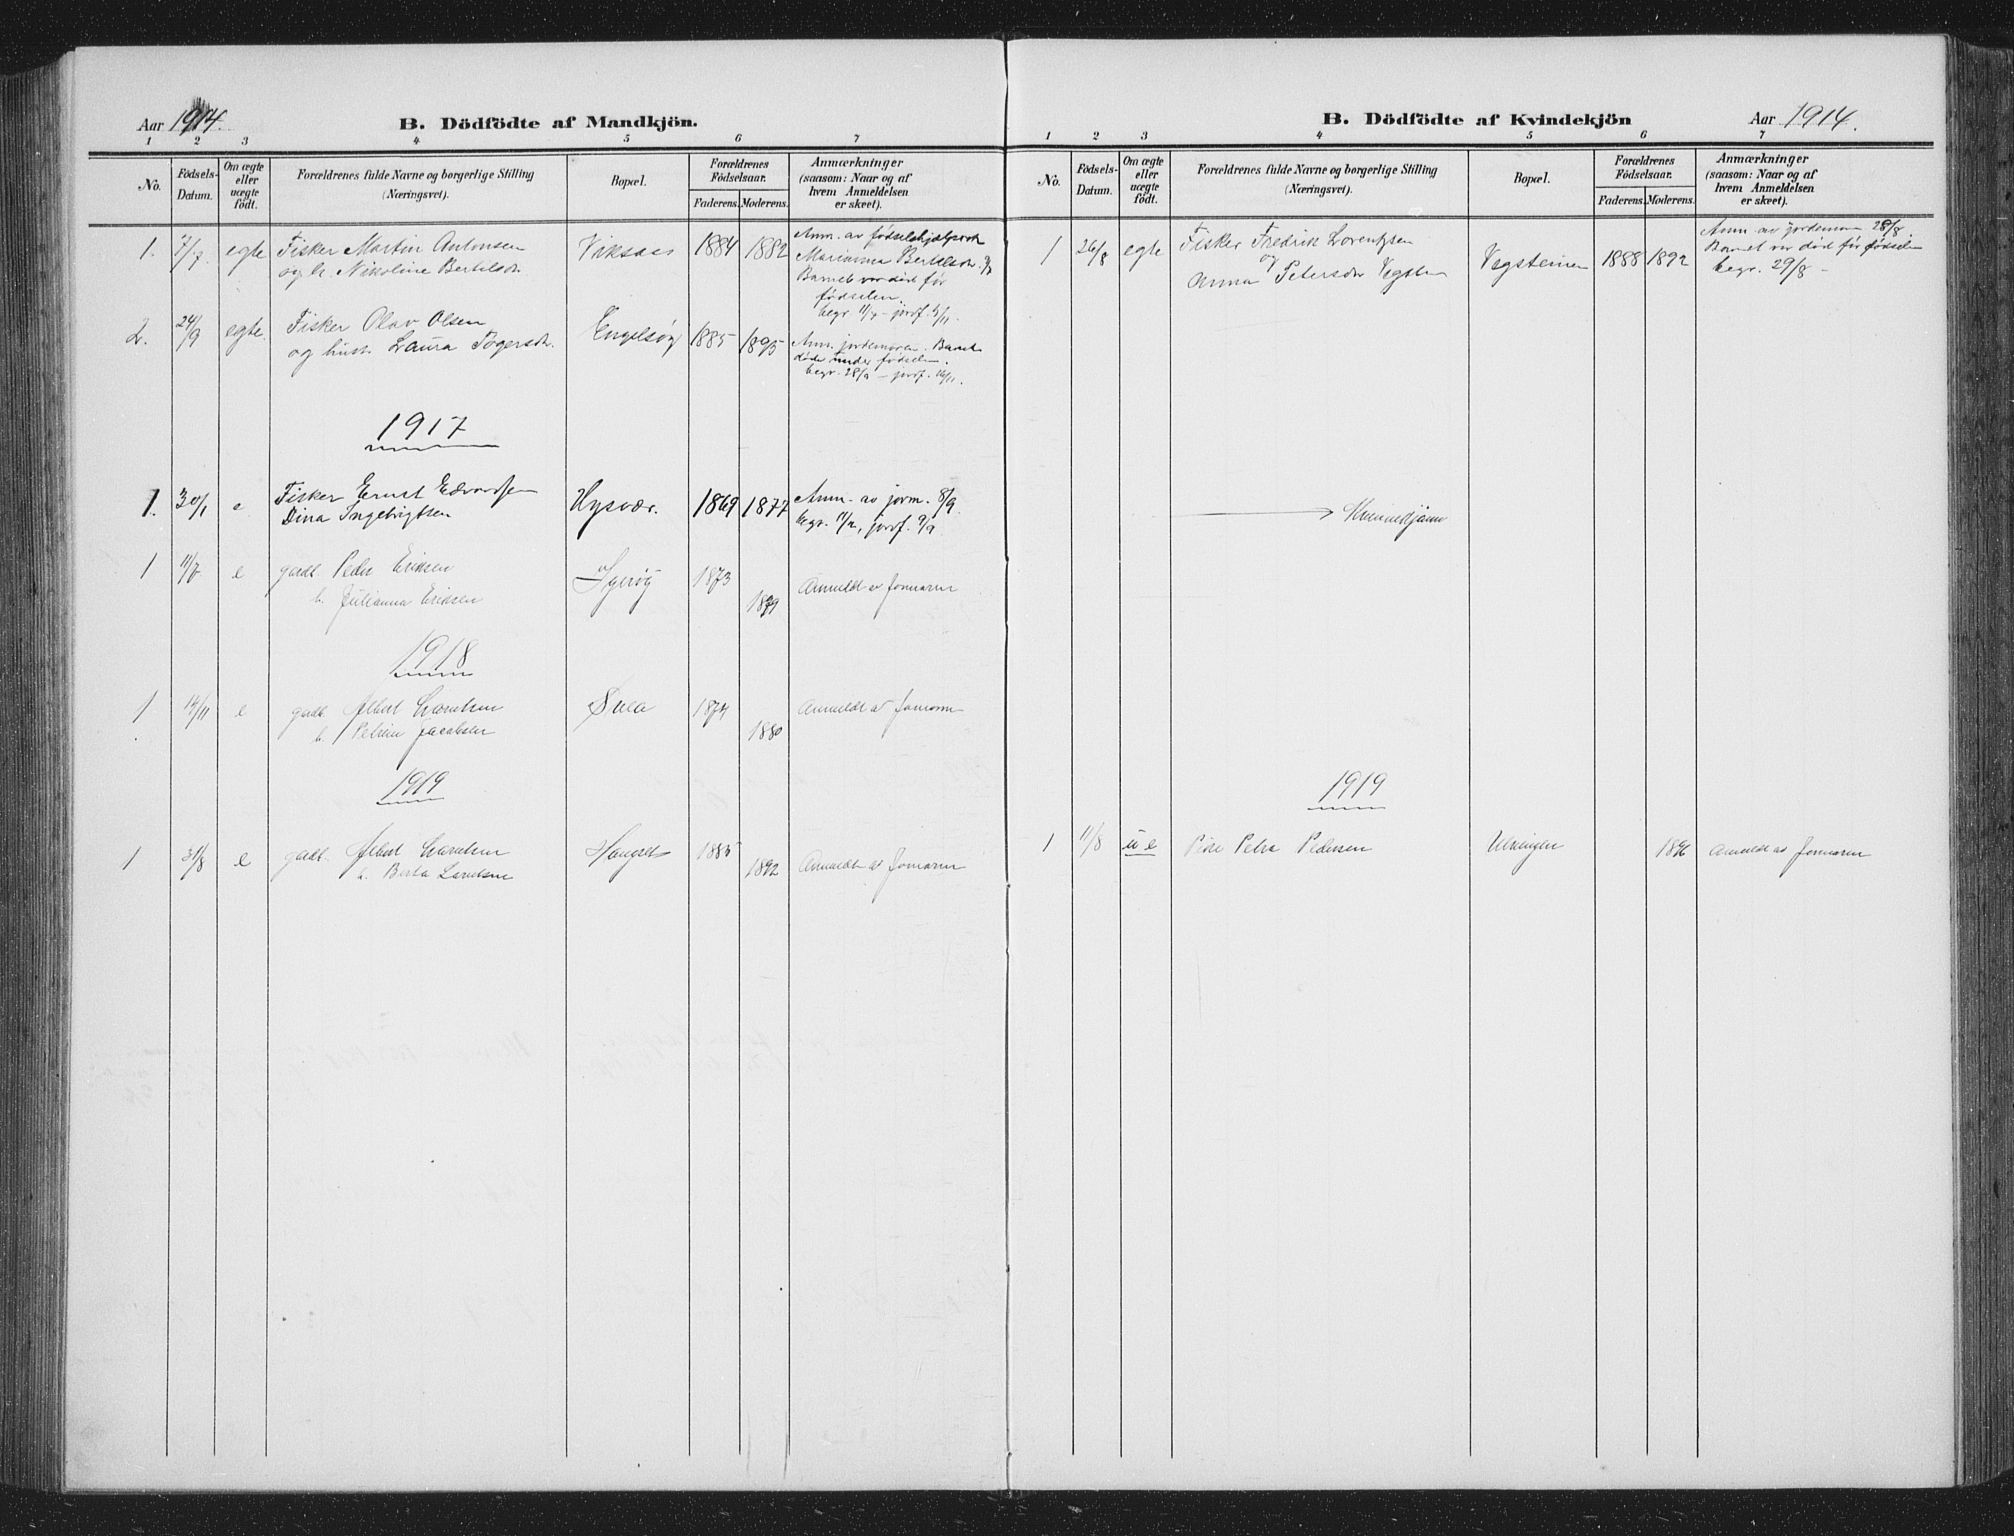 Aar 1914.
B. Dödfödte af Mandkjön.
1 2 3 4 5 6 7
No.
Födsels-
Datum.
Om ægte
eller
uægte
födt.
Forældrenes fulde Navne og borgerlige Stilling
(Næringsvei).
Bopæl.
Forældrenes
Födselsaar.
Faderens. Moderens.
Anmærkninger
(saasom: Naar og af
hvem Anmeldelsen
er skeet).
1. 7/7. egte Fisker Martin Antonsen
og h. Nikoline Bertelsdr.
Viksaas 1884 1882
Anm. av fødselshjelpersk
Marianna Bertelsdr.
Barnet var død før
fødselen.
begr. 11/7 - jordf. 8/11.
2. 24/9 egte. Fisker Olav Olsen
og hust. Laura Togersdr.
Engelsøy 1885 1895
Anm. jordemoren. Barnet
døde under fødselen.
begr. 28/9 - jordf. 16/11.
1917
1. 30/1 e Fisker Ernst Edvardsen
Dina Ingebrigtsen
Hysvær. 1869 1877
Anm. av jorm. 8/9.
begr. 11/2, jordf. 9/9
1 11/7 e gadb. Peder Eriksen
h. Julianna Eriksen
1873
1879
Anmeldt av jormoren
1918
1 14/11 e gadb. Albert
h. Petrine Jacobsen
Sula 1874
1880
Anmeldt av jormoren
1919
1 31/8 e gadb. Albert
h. Berta
1885
1892
Anmeldt av jormoren
B. Dödfödte af Kvindekjön
Aar 1914.
1 2 3 4 5 6 7
No.
Födsels-
Datum.
Om ægte
eller
uægte
födt.
Forældrenes fulde Navne og borgerlige Stilling
(Næringsvei).
Bopæl.
Forældrenes
Födselsaar.
Faderens. Moderens.
Anmærkninger
(saasom: Naar og af
hvem Anmeldelsen
er skeet).
1 26/8 egte Fisker Fredrik Lorentzsen
og
Anna Petersdr Vegstein
Vegsteinen 1888 1892
Anm av jordemoren 28/8
Barnet var død før fødselen
begr. 29/8 -
Kvinnekjønn
1919
1 11/8 u e Pike Petra Pedersen
1896 Anmeldt av jormoren